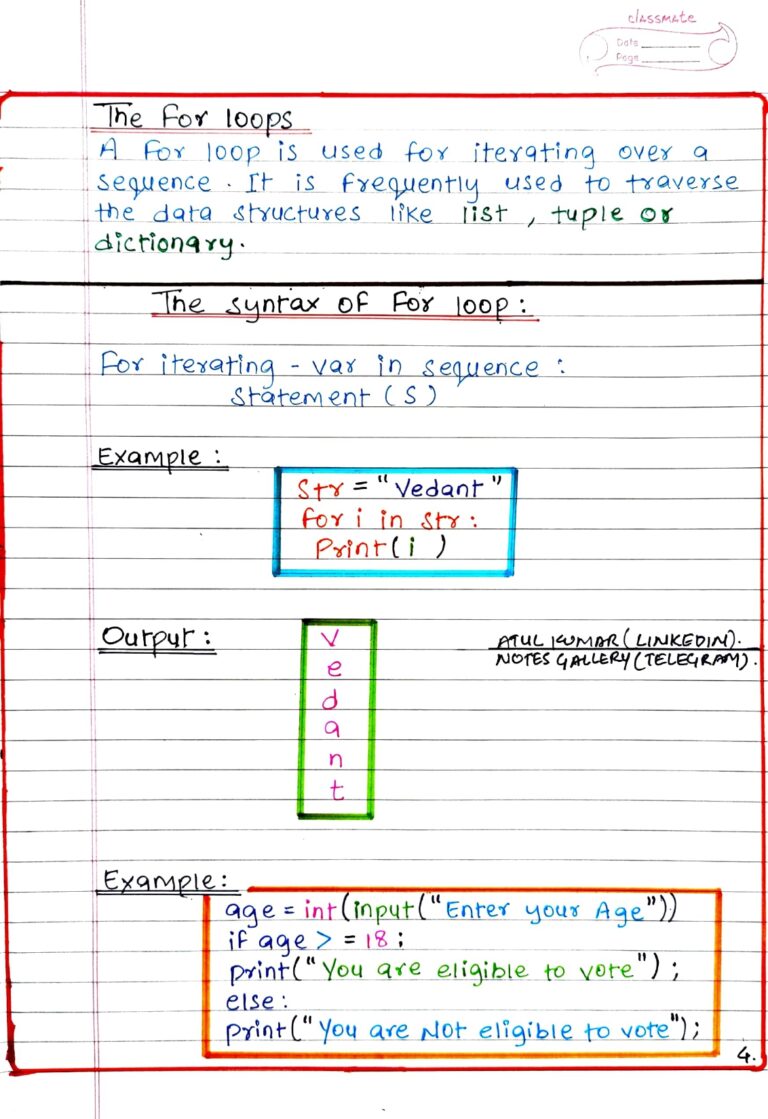 classmate
Date
Page
The for loops
A for loop is used for iterating over a
sequence. It is frequently used to traverse
the data structures like list, tuple or
dictionary.
The syntax of for loop:
For iterating - var in sequence :
Statement (S)
Example :
Str = "Vedant"
for i in str :
Print( i )
Output :
V
e
d
a
n
t
ATUL KUMAR (LINKEDIN).
NOTES GALLERY (TELEGRAM).
Example :
age = int(input("Enter your Age"))
if age > = 18 ;
print("You are eligible to vote") ;
else :
print("You are NOT eligible to vote");
4.